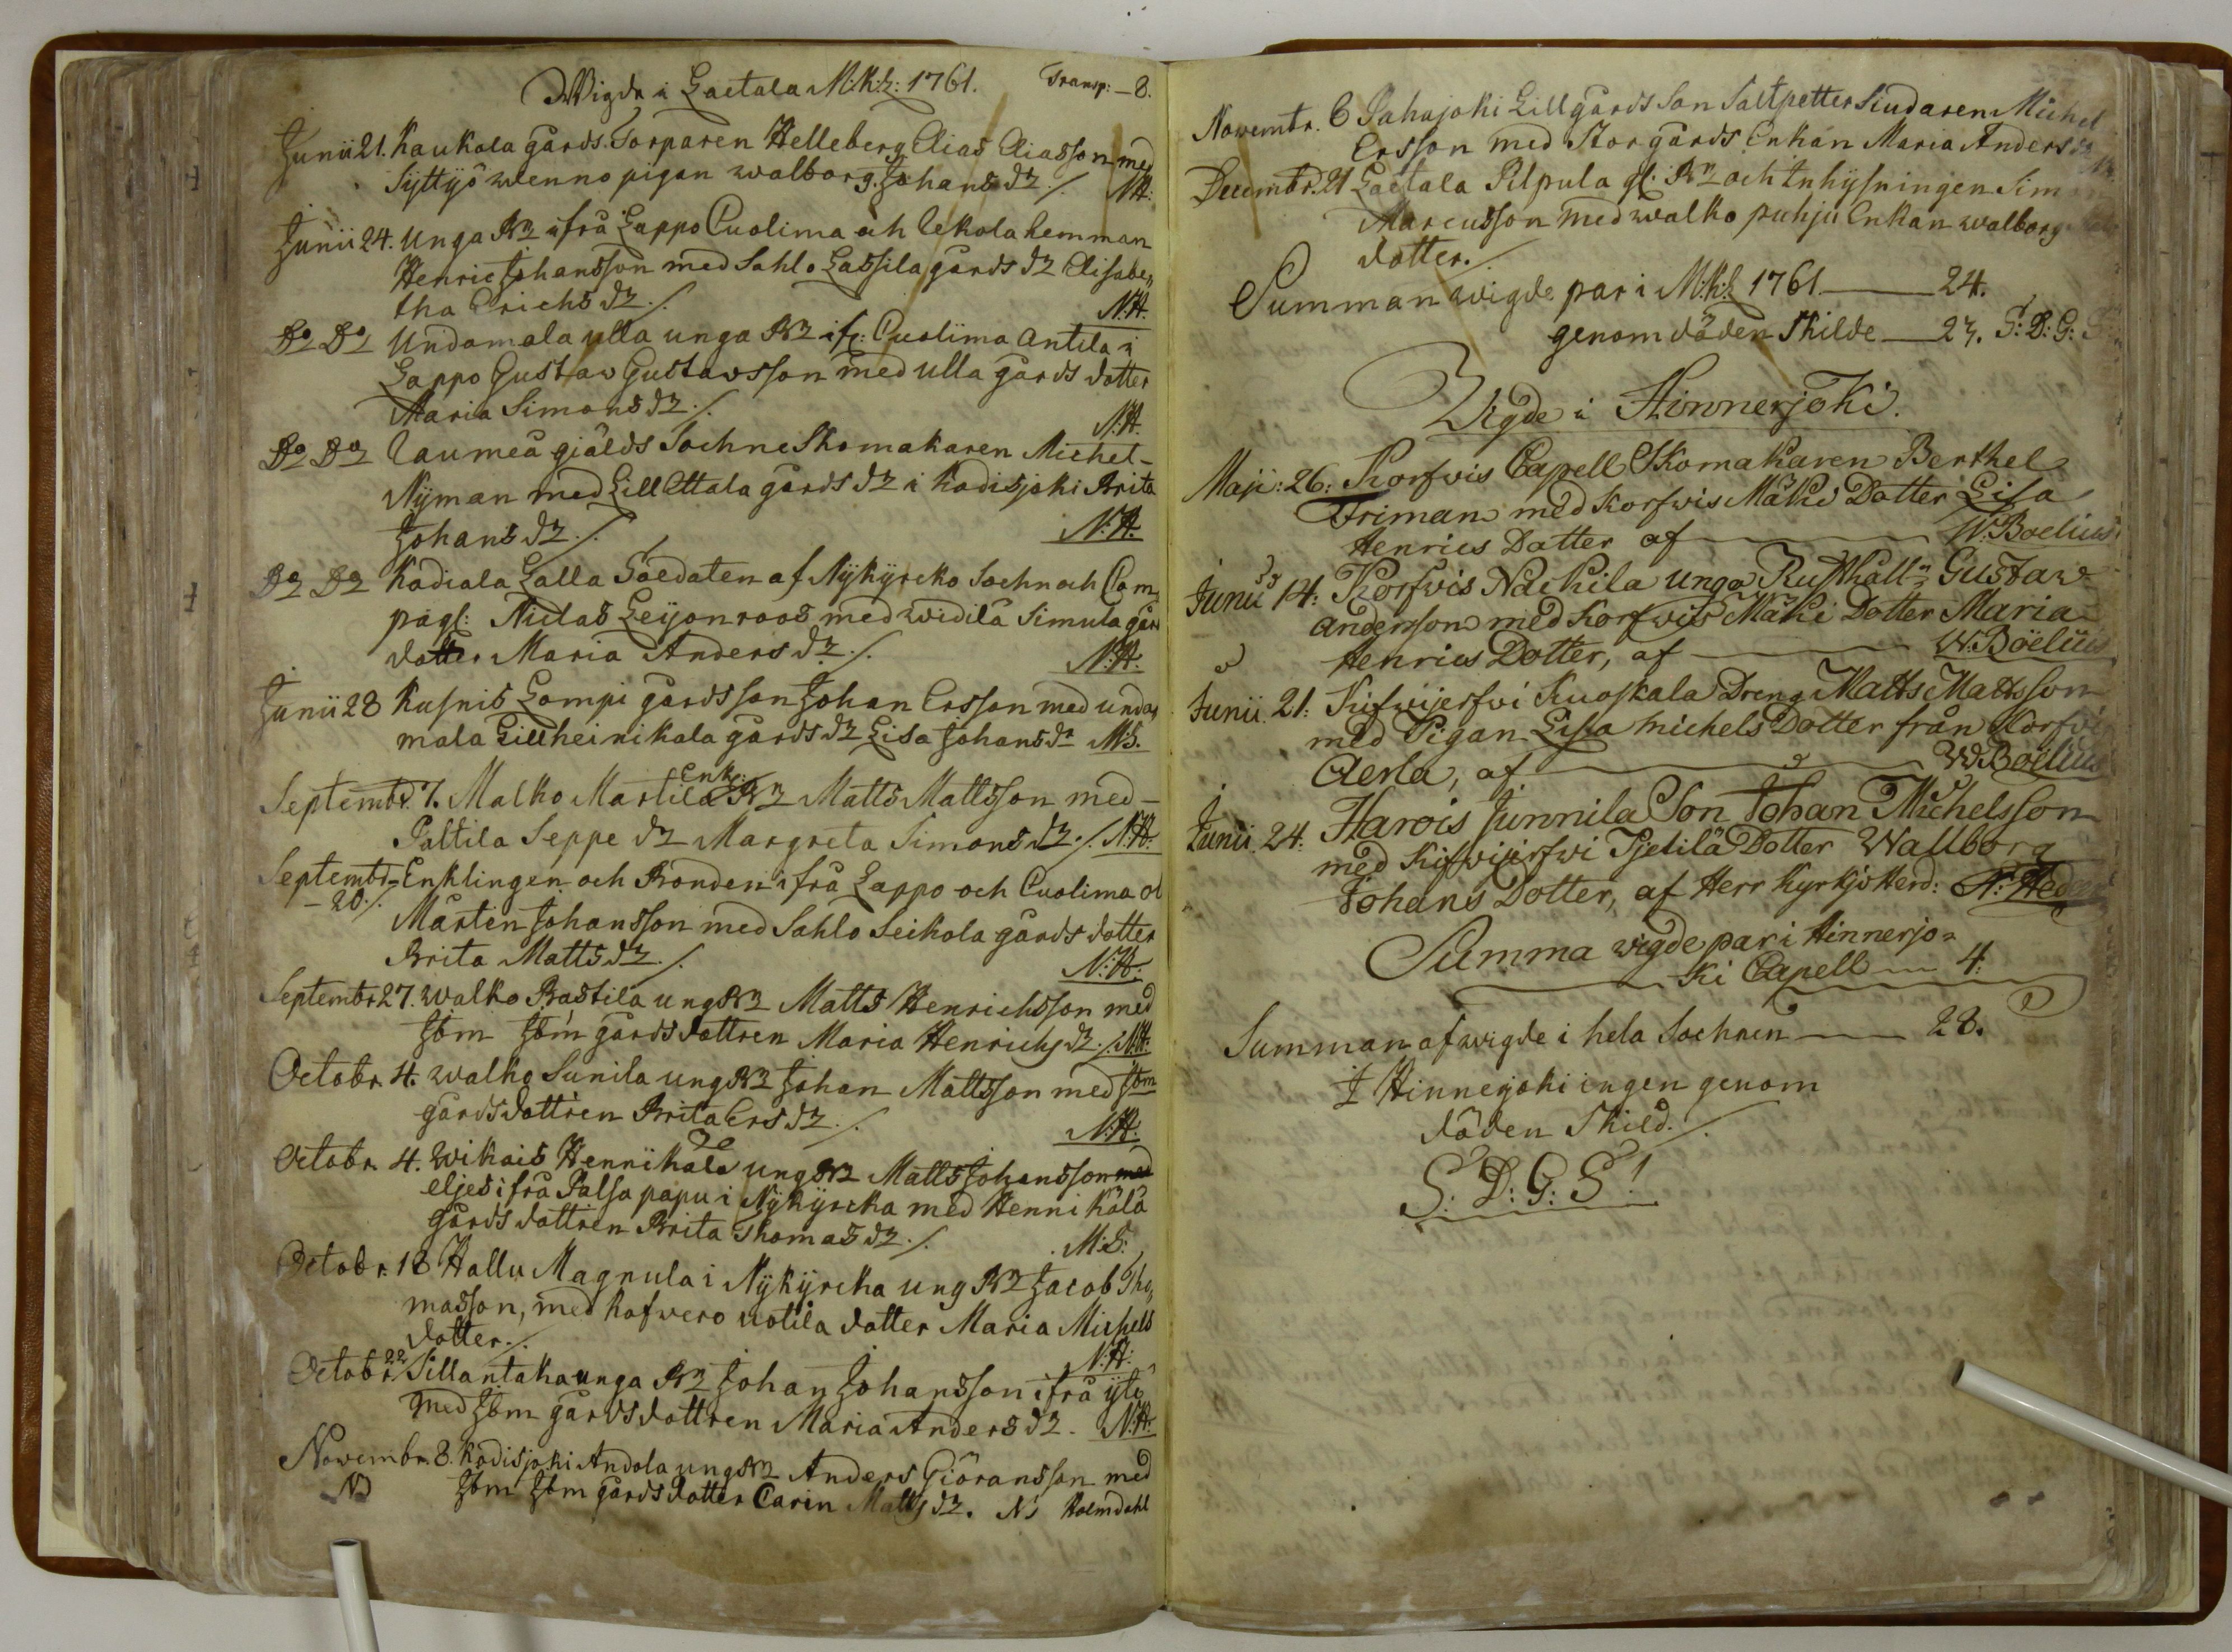 Wigde i Laetala M:k:l: 1761. Transp: — 8.
Junii 21. Kaukola gårds Torparen Helleberg Elias Eliasson med
Syttyö wenno pigan walborg Johans dr ./. N:H:
Junii 24. Unga Br ifrå Lappo Cuolima och Uckola hemman
Henric Johansson med Sahlo Lassila gårds dr Elisabe,,
tha Erichs dr ./. N:H.
Do Do Undamala ulla unga Br ifr: Cuolima Antila i
Lappo Gustav Gustavsson med ulla gårds dotter
Maria Simons dr ./. N:H.
Do Do Raumeå giälds Sochne Skomakaren Michel
Nyman med Lill Ettala gårds dr i Kodisjoki Brita
Johans dr ./. N:H.
Do Do Kodiala Lalla Soldaten af Nykyrcko Sochn och Com,,
pagl: Niclas Leijonroos med widilä Simula går
dotter Maria Anders dr ./. N:H:
Junii 28 Kusnis Lampi gårds son Johan Ersson med unda,,
mala Lillheinikala gårds dr Lisa Johans dr M:S.
Septembr. 7. Malko Martila Enk: Br Matts Mattsson med
Paltila Seppe dr Margreta Simons dr ./. N:H:
Septembr Enklingen och Bonden ifrå Lappo och Cuolima
— 20 ./. Mårten Johansson med Sahlo Seikola gårds dotter
Brita Matts dr ./. N:H:
Septembr 27. Walko Bastila ung Br Matts Henrichsson med
Jbm Jbm gårds dottren Maria Henrichs dr ./. N:H:
Octobr. 4. walko Sunila ung Br Johan Mattsson med Jbm
gårds dottren Brita Ers dr ./. N:H.
Octobr. 4. Wikais Hennikala ung Br Matts Johansson med
eljes ifrå Palsa papu i Nykyrcka med Henni kålå
gårds dottren Brita Thomas dr ./. M:S:
Octobr. 18 Hallu Magnula i Nykyrcka ung Br Jacob Tho,,
masson, med kafwero uotila dotter Maria Michels
dotter ./. N:H:
Octobr 22 Sillantaka unga Br Johan Johansson ifrå ytö
med Jbm gårds dottren Maria Anders dr. N:H.
Novembr. 8. Kodisjoki Andola ung Br Anders Giöransson med
Jbm Jbm gårds dotter Carin Matts dr. Ns Holmdahl
Novembr. 6 Pahajoki Lillgårds Son Saltpetter Siudaren Michel
Ersson med Storgårds Enkan Maria Anders dr
Decembr. 21 Laetala Pilpula gl: Br och Inhysningen Sim
Marcusson med walko puhju Enkan walborg
dotter ./.
Summan wigde par i M:k:l: 1761 —— 24.
genom döden Skilde — 23. S: D: G: S:
Vigde i Hinnerjoki.
Maji: 26: Korfwis Capell Skomakaren Berthel
Friman med korfwis Mäki Dotter Lisa
Henrics Dotter af —— W. Boelius
Junii 14: Korfwis Nackila unga Rusthåll: Gustaw
andersson med Korfwis Mäki Dotter Maria
Henrics Dotter, af —— W. Boelius
Junii. 21: Kifwijerfwi Kuoskala Dreng Matts Mattsson
med Pigan Lisa michels Dotter från Korfwi
Aerla, af —— W Boelius
Junii. 24: Harois Junnila Son Johan Michelsson
med Kifwijerfwi Pjetilä Dotter Wallborg
Johans Dotter, af Herr Kyrkjo Herd: N: Hed
Summa wigde par i Hinnerjo=
ki Capell — 4.
Summan af wigde i hela Sochnen —— 28.
I Hinnerjoki ingen genom
döden Skild ./.
S: D: G: S!